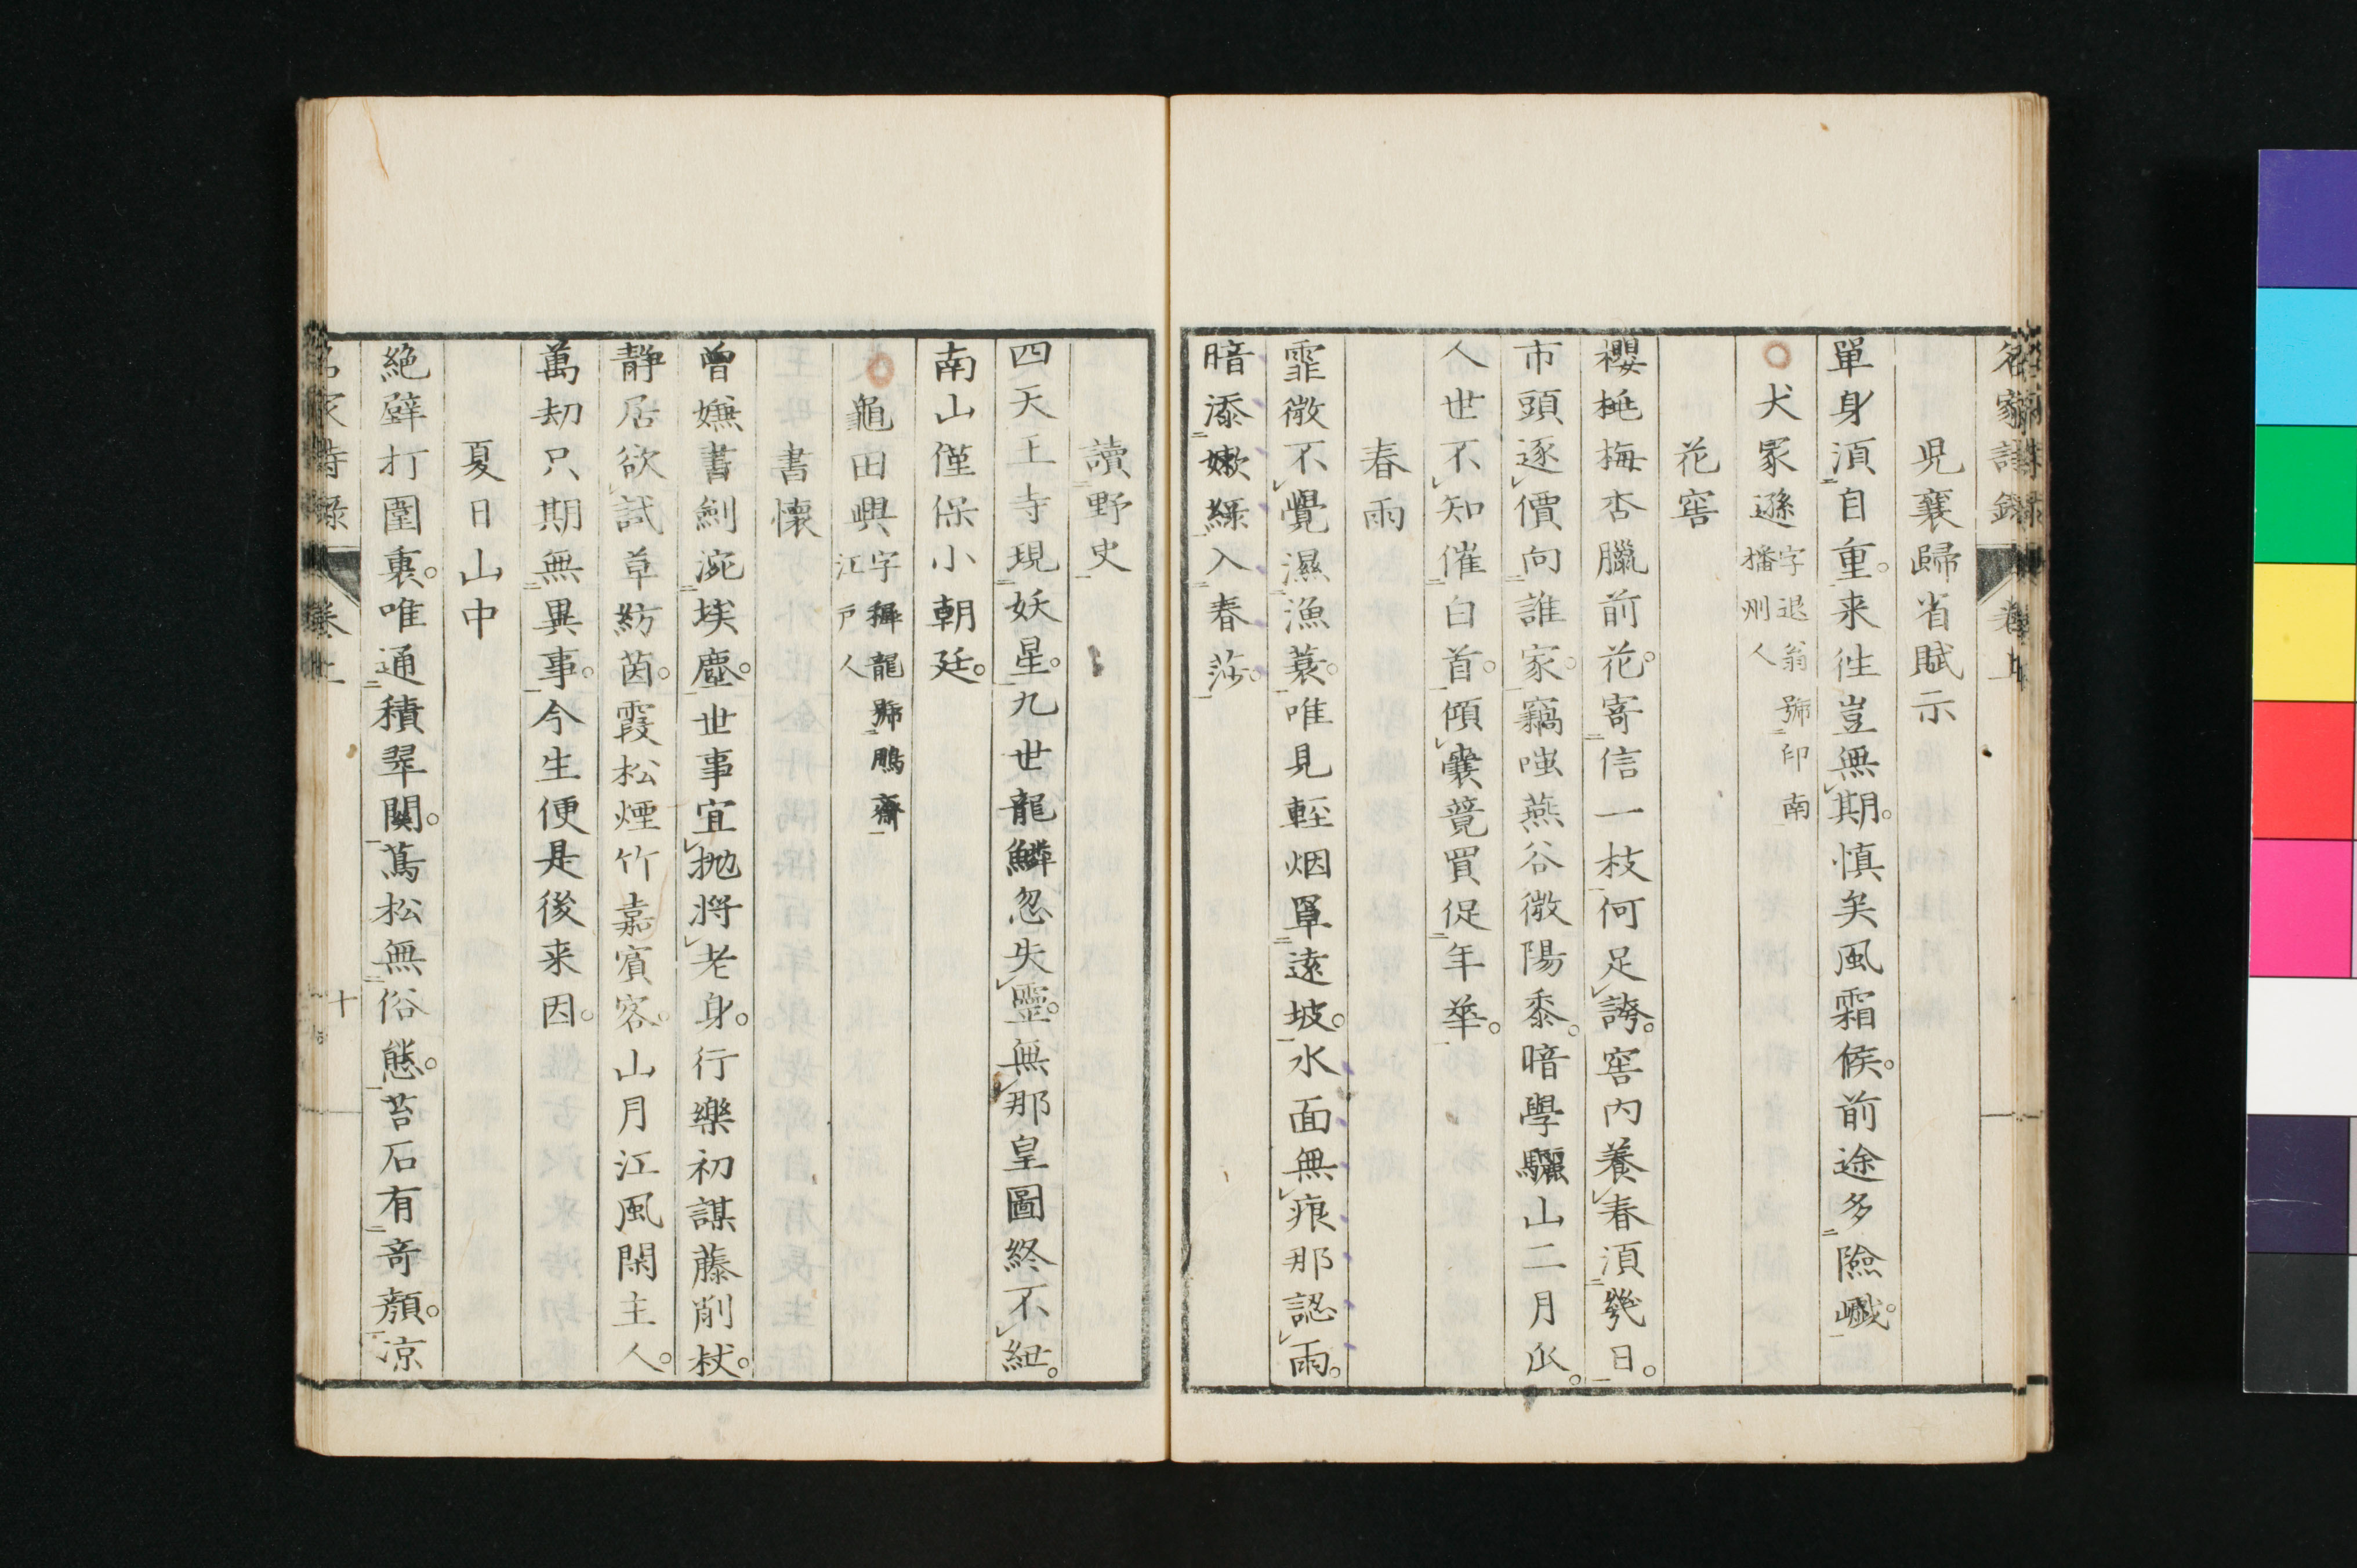 名家詩録 卷上
兒襄歸省賦示
單身須自重。来徃豈無期。慎矣風霜候。前途多險巇。
犬冢遜 字退翁號印南 播州人
花窖
櫻桃梅杏臘前花。寄信一枝何足誇。窖内養春須幾日。
市頭逐價向誰家。竊嗤燕谷微陽黍。暗學驪山二月瓜。
人世不知催白首。傾囊競買促年華。
春雨
霏微不覺濕漁蓑。唯見輕烟罩遠坡。水面無痕那認雨。
暗添嫩緑入春莎。
讀野史
四天王寺現妖星。九世龍鱗忽失靈。無那皇圖終不紐。
南山僅保小朝廷。
龜田興 字穉龍號鵬齋 江戸人
書懷
曾嫌書劍涴埃塵。世事宜抛將老身。行樂初謀藤削杖。
静居欲試草紡茵。霞松煙竹嘉賓客。山月江風閑主人。
萬刧只期無異事。今生便是後来因。
夏日山中
絶壁打圍裏。唯通積翠關。蔦松無俗態。苔石有奇顔。凉
名家詩録 卷上 十